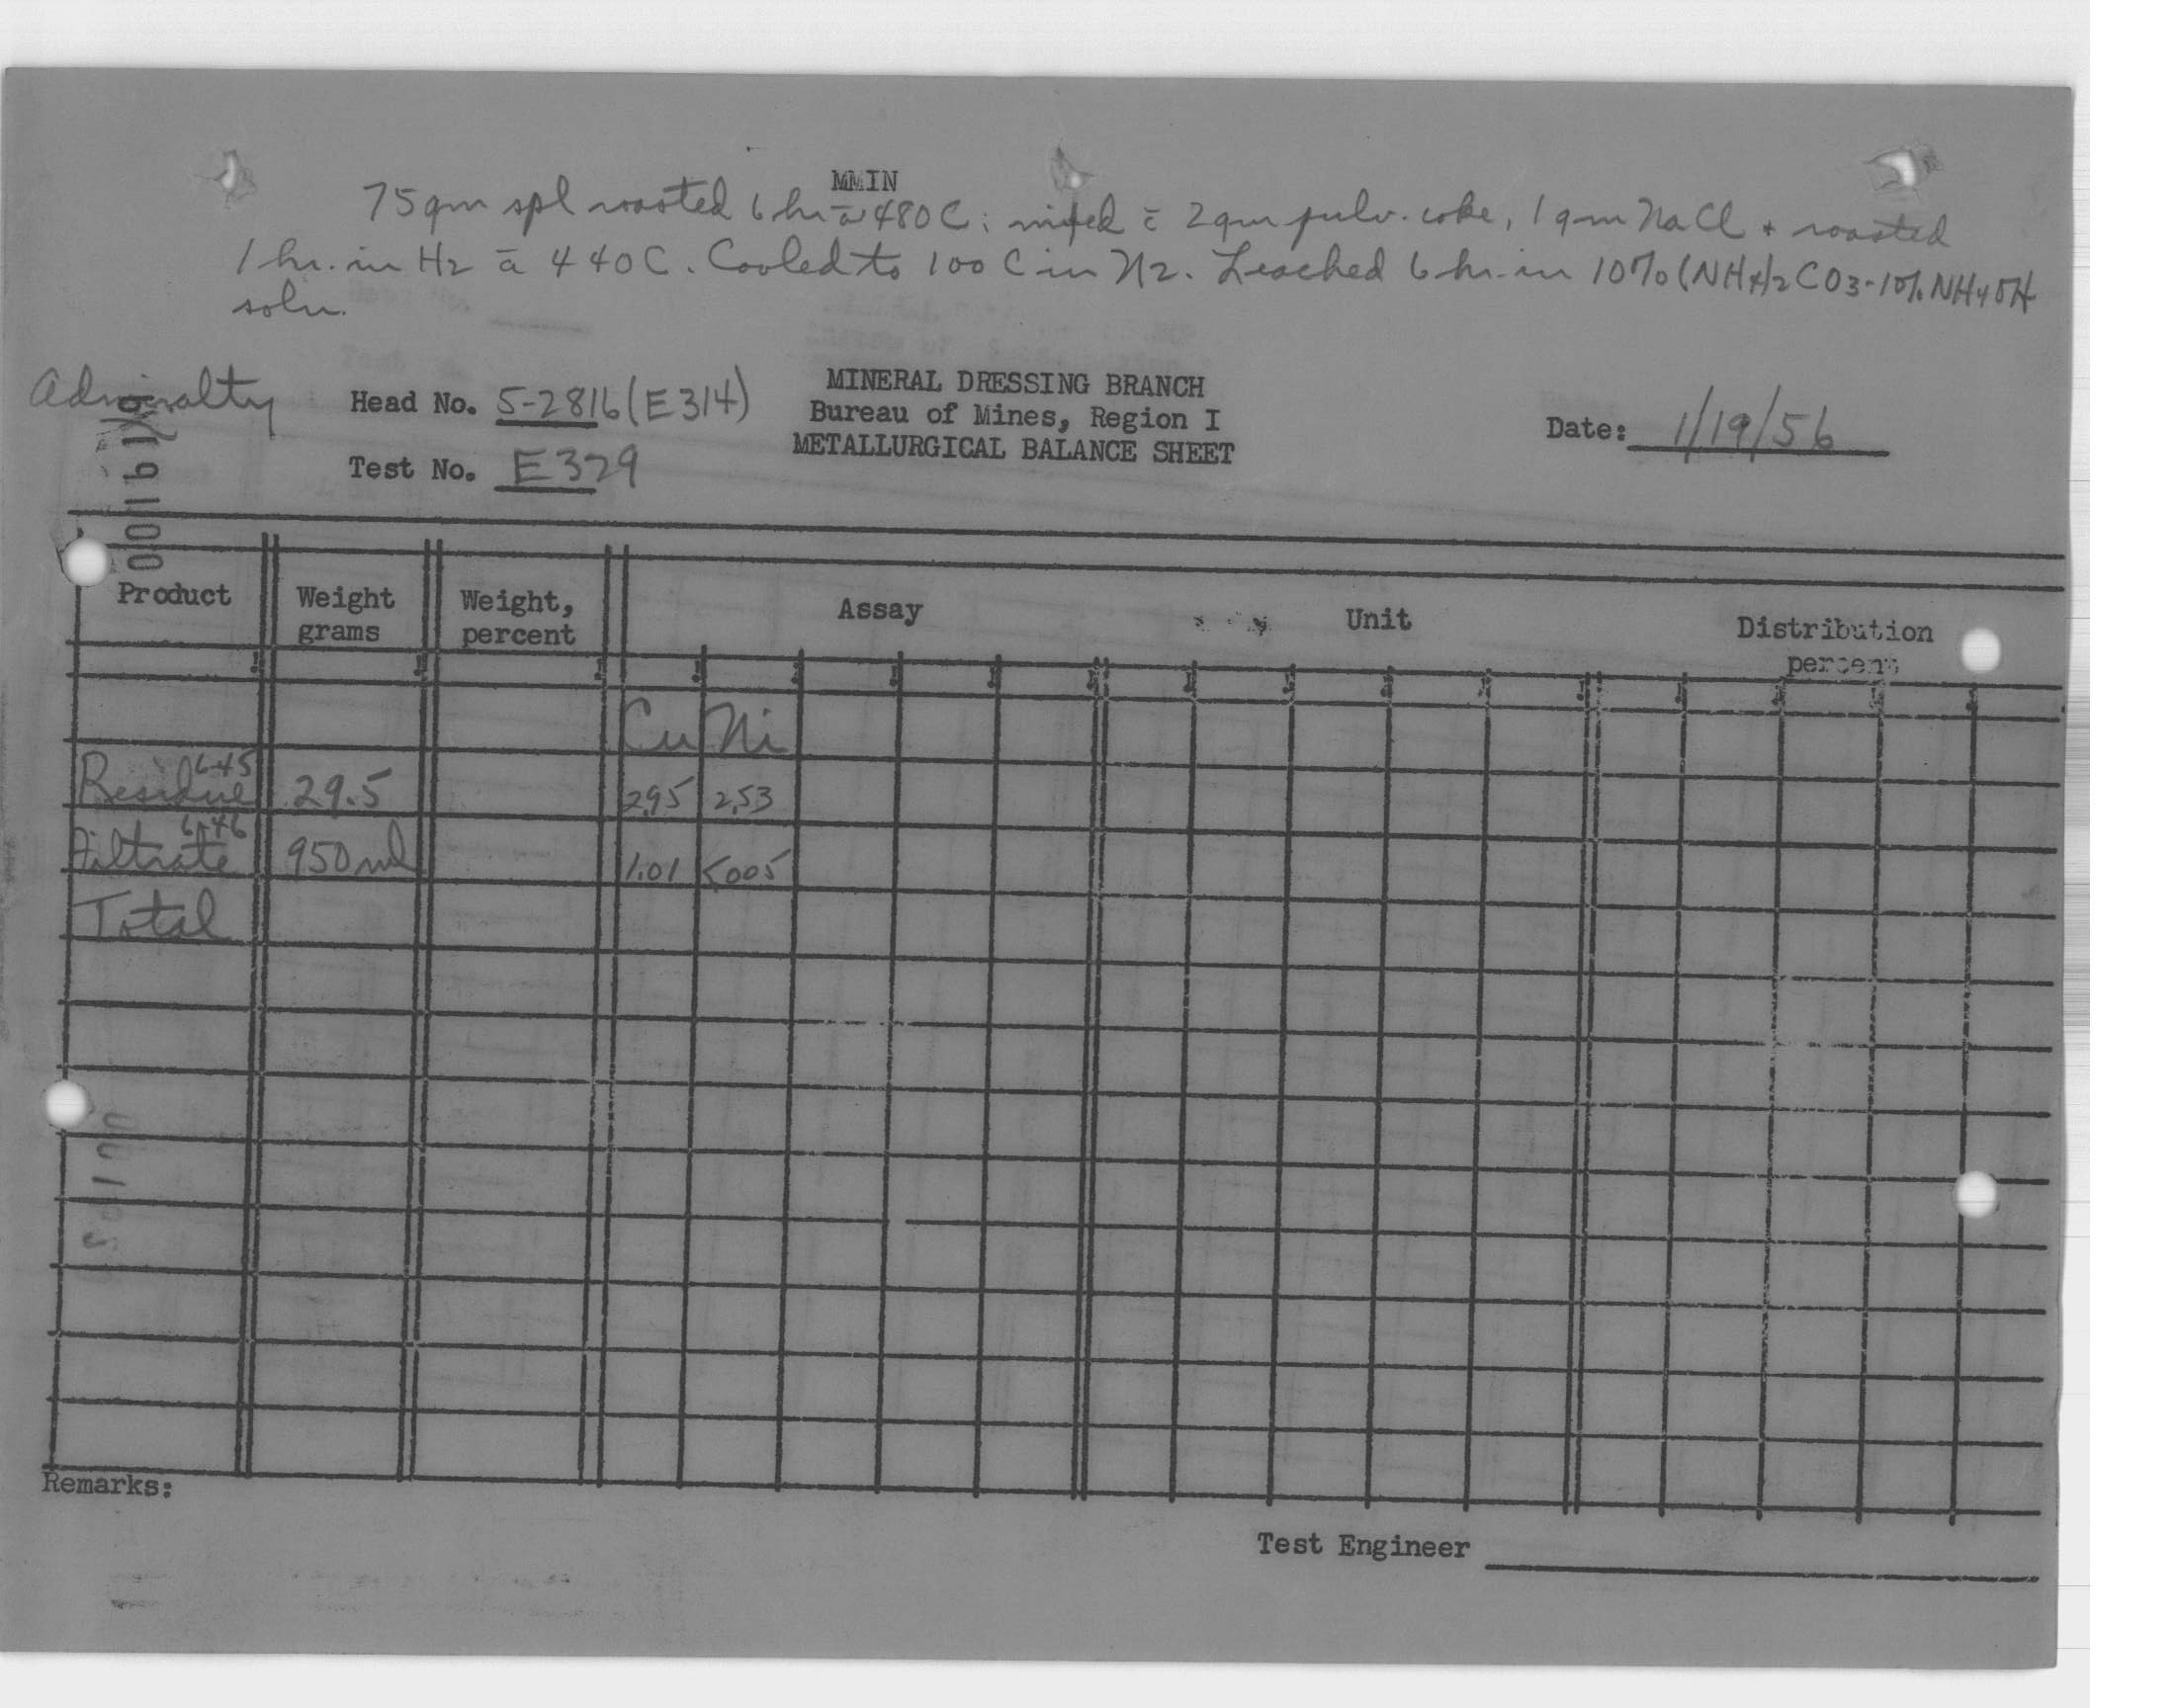 MMIN
75 gm spl roasted 6 hr ā 480 C; mixed c̄ 2 gm pulv. coke, 1 gm NaCl + roasted
1 hr. in H2 ā 440 C. Cooled to 100 C in N2. Leached 6 hr. in 10% (NH4)2 CO3 - 10% NH4OH
soln.
Admiralty
Head No. 5-2816 (E314)
Test No. E329
MINERAL DRESSING BRANCH
Bureau of Mines, Region I
METALLURGICAL BALANCE SHEET
Date: 1/19/56
Product Weight grams Weight, percent Assay Unit Distribution percent
Cu Ni
Residue 6-45 29.5 2.95 2.53
Filtrate 6-46 950 ml 1.01 <.005
Total
Remarks:
Test Engineer